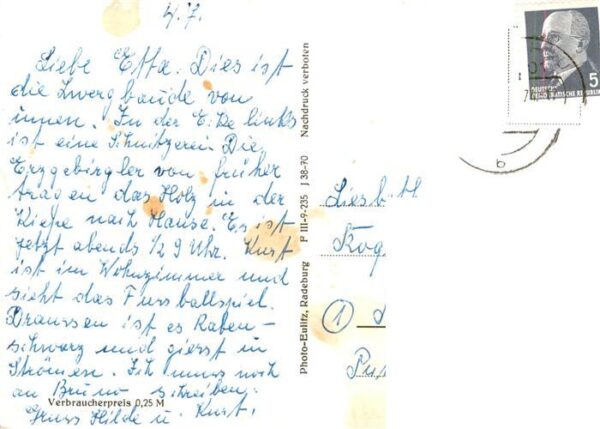 4.7.
Liebe Etta. Dies ist
die Zwergbaude von
innen. In der Ecke links
ist eine Schnitzerei Die
Erzgebirgler von früher
tragen das Holz in der
Kiepe nach Hause. Es ist
jetzt abends ½ 9 Uhr. Kurt
ist im Wohnzimmer und
sieht das Fussballspiel.
Draussen ist es Raben-
schwarz und giesst in
Strömen. Ich muss noch
an Bruno schreiben.
Gruss Hilde u. Kurt.
Verbraucherpreis 0,25 M
Photo-Eulitz, Radeburg F III-9-235 J 38-70 Nachdruck verboten
Liesb
Kog
1
5
DEUTSCHE
DEMOKRATISCHE REPUBLIK